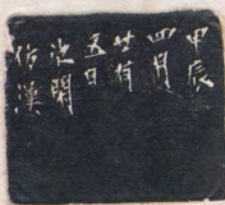 甲辰
四月
廿有
五日
池閑
仿漢